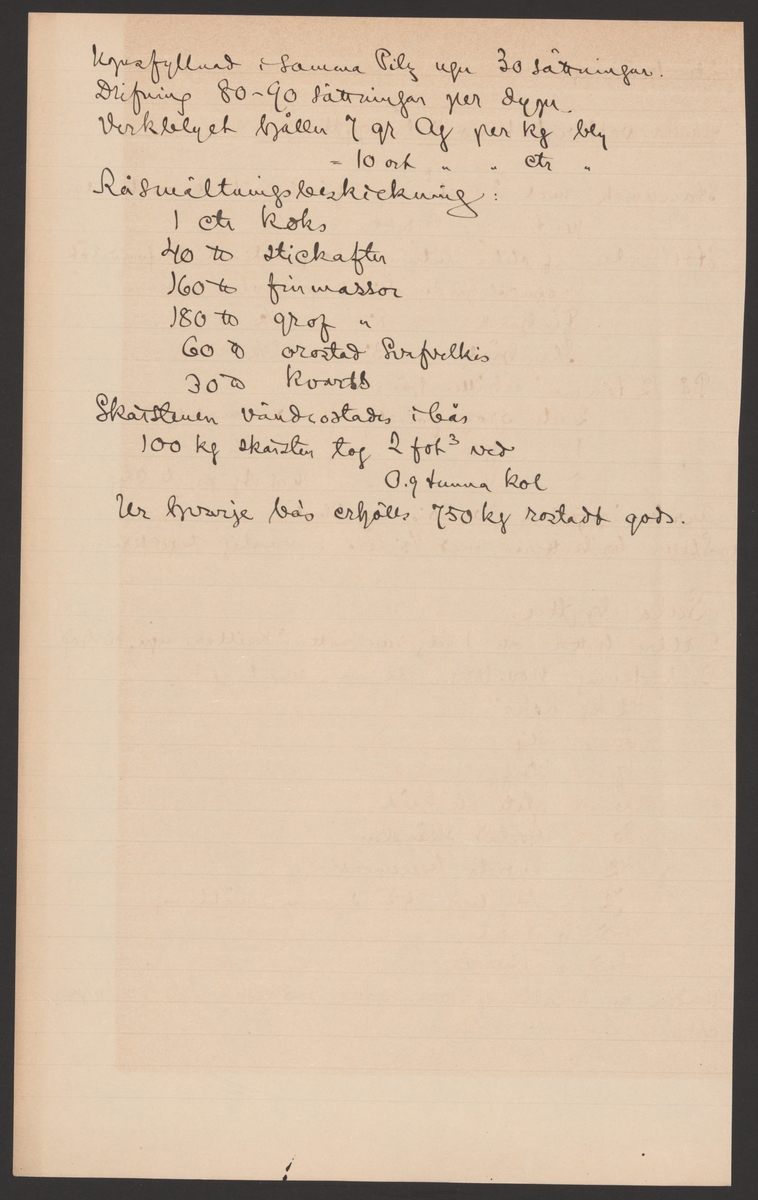 Kopsfyllnad i samma Pilz ugn 30 sättningar.
Drifning 80-90 sättningar per dygn.
Verkblyet håller 7 gr Ag per kg bly
= 10 ort " " ctr "
Råsmältningsbeskickning:
1 ctr koks
40 ℔ stickafter
160 ℔ finmassor
180 ℔ grof "
60 ℔ orostad Svafvelkis
30 ℔ kvarts
Skärstenen vändrostades i bås
100 kg skärsten tog 2 fot³ ved
0.9 tunna kol
Ur hvarje bås erhölls 750 kg rostadt gods.